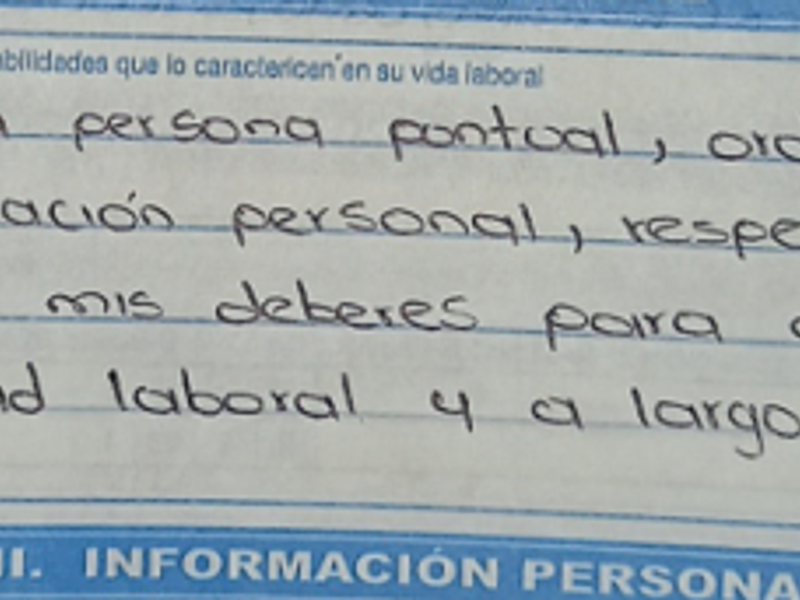 abilidades que lo caractericen en su vida laboral
persona puntual,
ación personal, respe
mis deberes para
laboral y a largo
II. INFORMACIÓN PERSONA